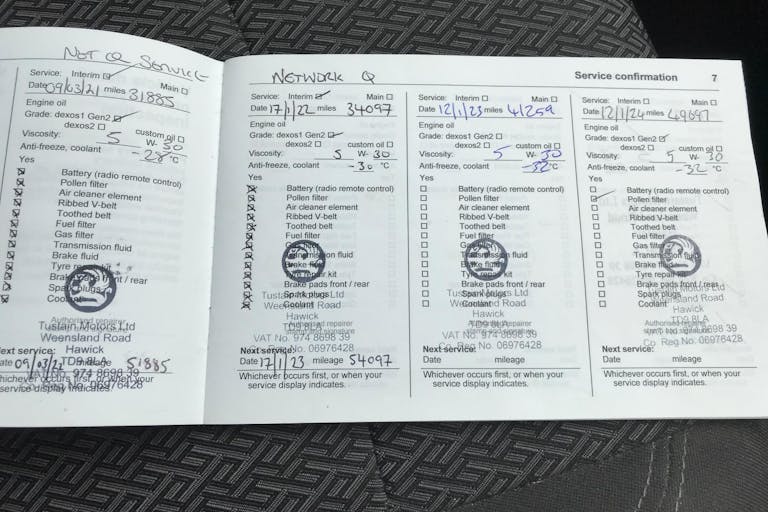 NOT Q SERVICE
Service: Interim ☑ Main ☐
Date 09/03/21 miles 31885
Engine oil
Grade: dexos1 Gen2 ☑
dexos2 ☐ custom oil ☐
Viscosity: 5 W- 30
Anti-freeze, coolant -28 °C
Yes
Battery (radio remote control)
Pollen filter
Air cleaner element
Ribbed V-belt
Toothed belt
Fuel filter
Gas filter
Transmission fluid
Brake fluid
Tyre repair kit
Brake pads front / rear
Spark plugs
Coolant
Authorised repairer
Tustain Motors Ltd
Weensland Road
Hawick
Next service: TD9 8LA
Date 09/03/22 mileage 51885
VAT No. 974 8698 39
Whichever occurs first, or when your
Co. Reg No. 06976428
service display indicates.
NETWORK Q
Service confirmation 7
Service: Interim ☑ Main ☐
Date 17/1/22 miles 34097
Engine oil
Grade: dexos1 Gen2 ☑
dexos2 ☐ custom oil ☐
Viscosity: 5 W- 30
Anti-freeze, coolant -30 °C
Yes
Battery (radio remote control)
Pollen filter
Air cleaner element
Ribbed V-belt
Toothed belt
Fuel filter
Gas filter
Transmission fluid
Brake fluid
Tyre repair kit
Brake pads front / rear
Spark plugs
Coolant
Tustain Motors Ltd
Weensland Road
Hawick
TD9 8LA
VAT No. 974 8698 39
Co. Reg No. 06976428
Next service:
Date 17/1/23 mileage 54097
Whichever occurs first, or when your
service display indicates.
Service: Interim ☐ Main ☐
Date 12/1/23 miles 41259
Engine oil
Grade: dexos1 Gen2 ☐
dexos2 ☐ custom oil ☐
Viscosity: 5 W- 30
Anti-freeze, coolant -32 °C
Yes
Battery (radio remote control)
Pollen filter
Air cleaner element
Ribbed V-belt
Toothed belt
Fuel filter
Gas filter
Transmission fluid
Brake fluid
Tyre repair kit
Brake pads front / rear
Spark plugs
Coolant
Tustain Motors Ltd
Weensland Road
Hawick
TD9 8LA
Authorised repairer
stamp and signature
VAT No. 974 8698 39
Co. Reg No. 06976428
Next service:
Date mileage
Whichever occurs first, or when your
service display indicates.
Service: Interim ☐ Main ☐
Date 12/1/24 miles 49697
Engine oil
Grade: dexos1 Gen2 ☑
dexos2 ☐ custom oil ☐
Viscosity: 5 W- 30
Anti-freeze, coolant -32 °C
Yes
Battery (radio remote control)
Pollen filter
Air cleaner element
Ribbed V-belt
Toothed belt
Fuel filter
Gas filter
Transmission fluid
Brake fluid
Tyre repair kit
Brake pads front / rear
Spark plugs
Coolant
Motors Ltd
Weensland Road
Hawick
TD9 8LA
Authorised repairer
stamp and signature
VAT No. 974 8698 39
Co. Reg No: 06976428
Next service:
Date mileage
Whichever occurs first, or when your
service display indicates.